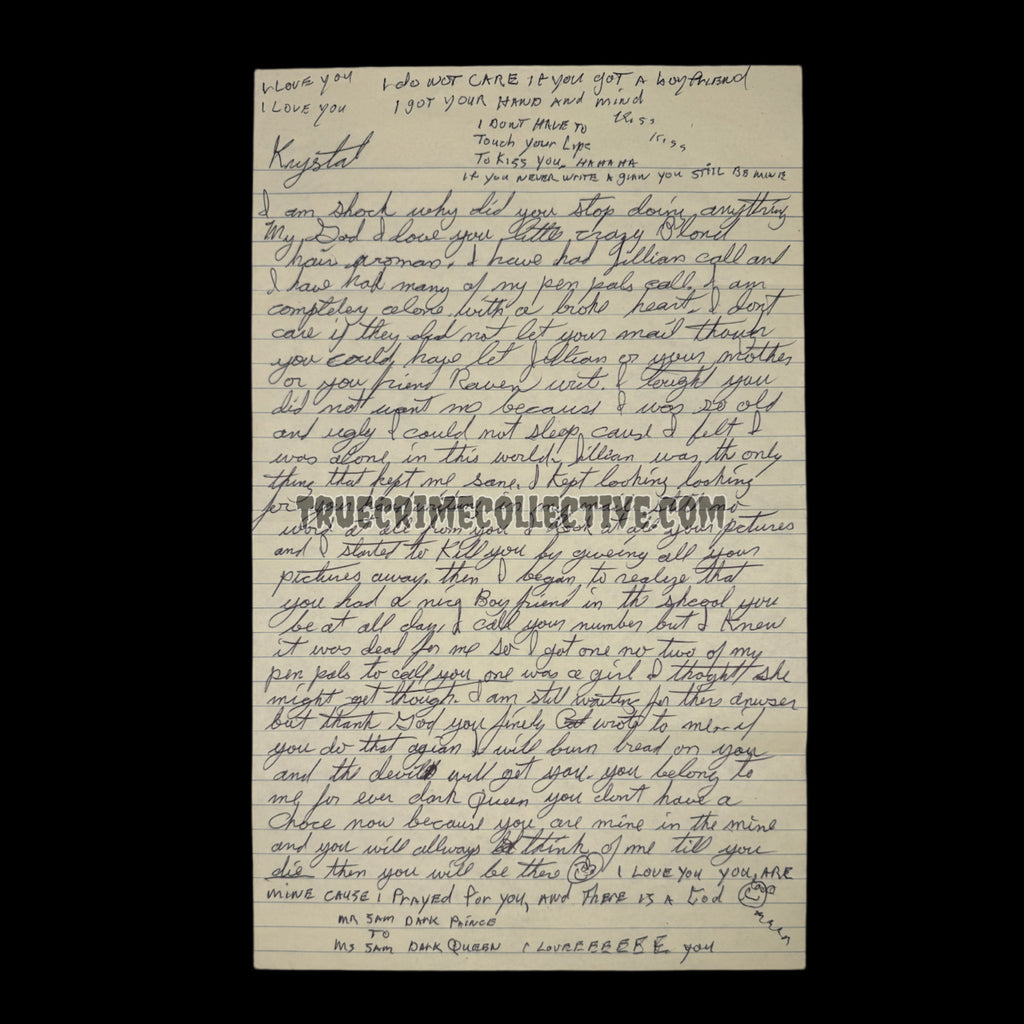 I LOVE YOU I do NOT CARE If you got A boyfriend
I LOVE YOU I GOT YOUR HAND AND mind
I DONT HAVE TO Kiss
Touch your Lips Kiss
To Kiss you. HAHAHA
If you NEVER WRITE AGIAN YOU STILL BE MINE
Krystal
I am shock why did you stop doing anything
My God I love you little crazy Blond
hair woman. I have had Jillian call and
I have had many of my pen pals call. I am
completey alone with a broke heart. I don't
care if they did not let your mail though
you could have let Jillian or your mother
or you friend Raven writ. I tought you
did not want me because I was so old
and ugly I could not sleep cause I felt I
was alone in this world. Jillian was th only
thing that kept me sane. I kept looking looking
for your in my mail still no
word at all from you I look at all your pictures
and I started to Kill you by giveing all your
pictures away. then I began to realize that
you had a nice Boy friend in th shcool you
be at all day. I call your number but I Knew
it was dead for me so I got one no two of my
pen pals to call you one was a girl I thoght she
might get though. I am still waiting for thers anwser
but thank God you finely wrote to me. if
you do that agian I will burn bread on you
and the devil will get you. you belong to
me for ever dark Queen you don't have a
choce now because you are mine in the mine
and you will allways think of me till you
die then you will be there I LOVE YOU YOU ARE
MINE CAUSE I PRAYED for you, AND THERE IS A GOD
MR SAM DARK PRINCE
TO
MS SAM DARK QUEEN I LOVEEEEEEE you
TRUECRIMECOLLECTIVE.COM